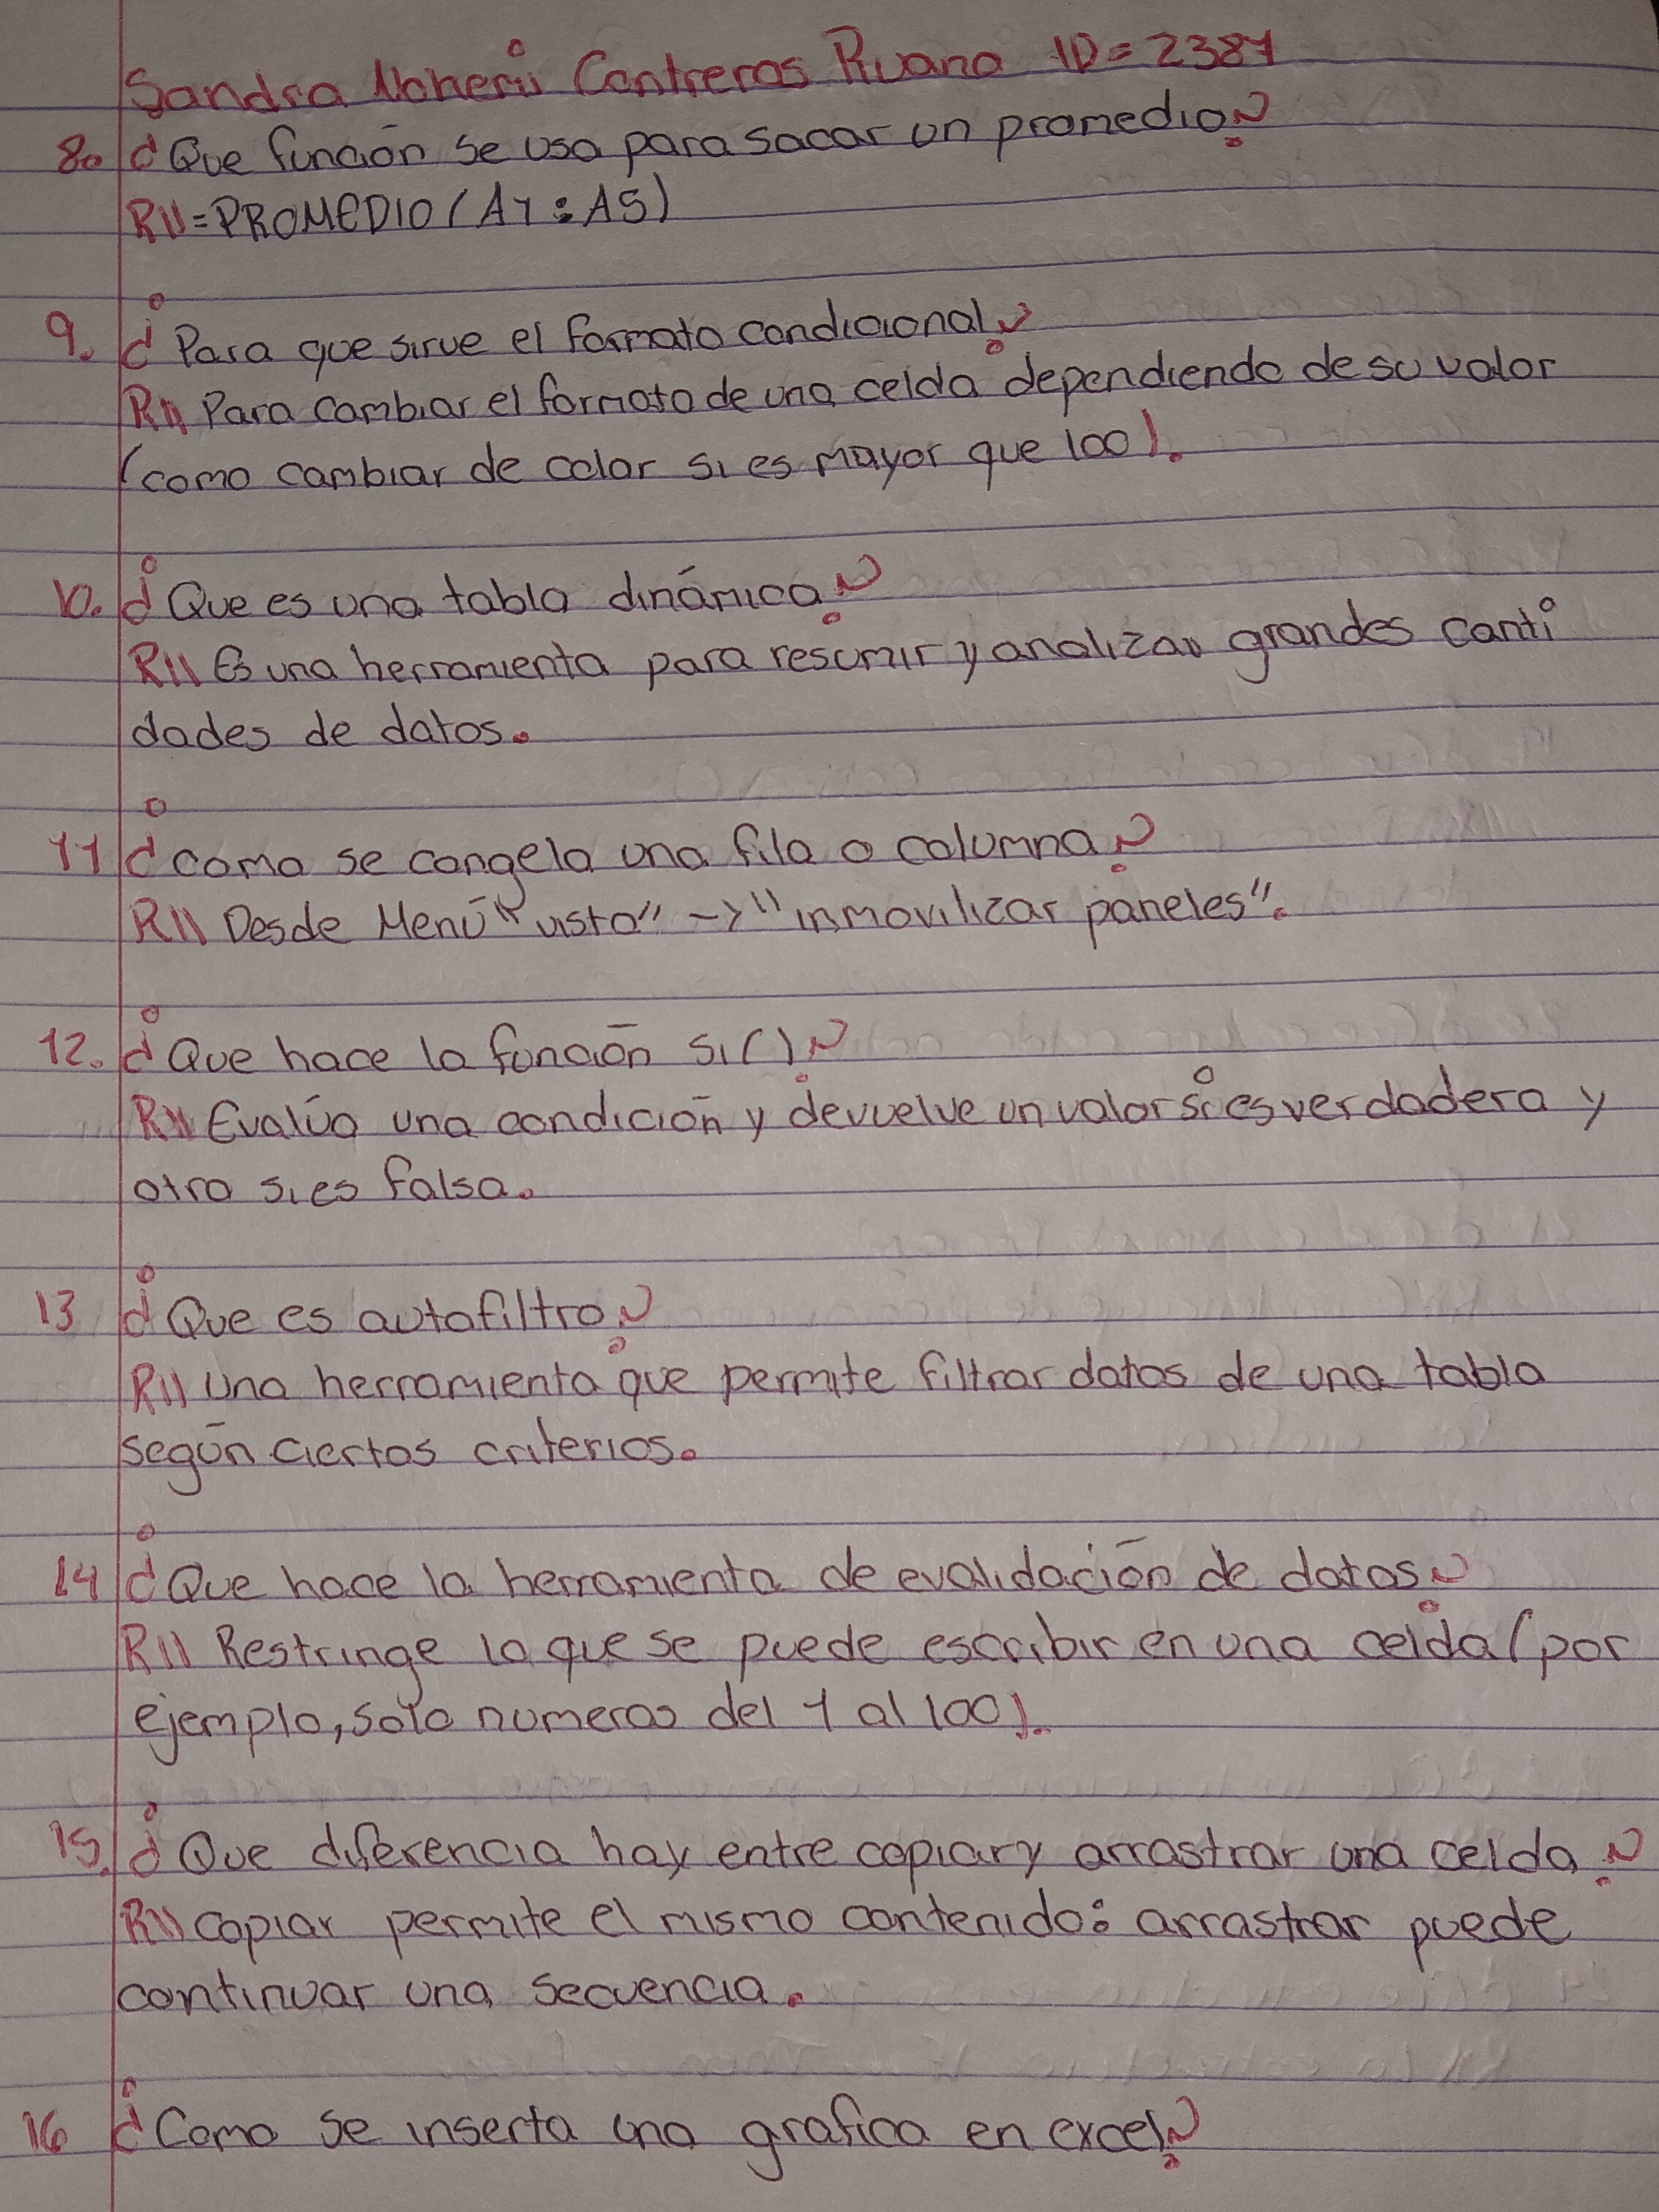 Sandra Noheri Contreras Ruano ID=2387
8. ¿Que función se usa para sacar un promedio?
R// =PROMEDIO(A1:A5)
9. ¿Para que sirve el formato condicional?
R// Para cambiar el formato de una celda dependiendo de su valor
(como cambiar de color si es mayor que 100).
10. ¿Que es una tabla dinámica?
R// Es una herramienta para resumir y analizar grandes canti
dades de datos.
11 ¿como se congela una fila o columna?
R// Desde Menú "vista" -> "inmovilizar paneles".
12. ¿Que hace la función si()?
R// Evalúa una condición y devuelve un valor si es verdadera y
otro si es falsa.
13 ¿Que es autofiltro?
R// Una herramienta que permite filtrar datos de una tabla
según ciertos criterios.
14 ¿Que hace la herramienta de evalidación de datos?
R// Restringe lo que se puede escribir en una celda (por
ejemplo, solo numeros del 1 al 100).
15. ¿Que diferencia hay entre copiar y arrastrar una celda?
R// copiar permite el mismo contenido: arrastrar puede
continuar una secuencia.
16 ¿Como se inserta una grafica en excel?